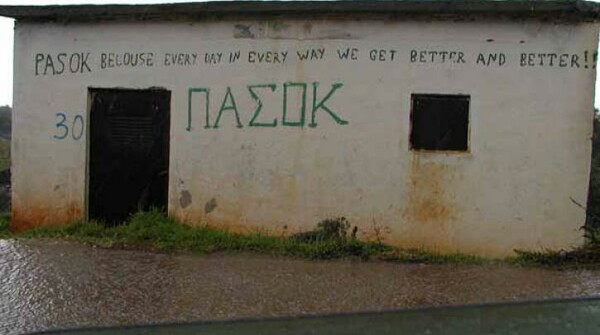 PASOK BECOUSE EVERY DAY IN EVERY WAY WE GET BETTER AND BETTER!!
ΠΑΣΟΚ
30